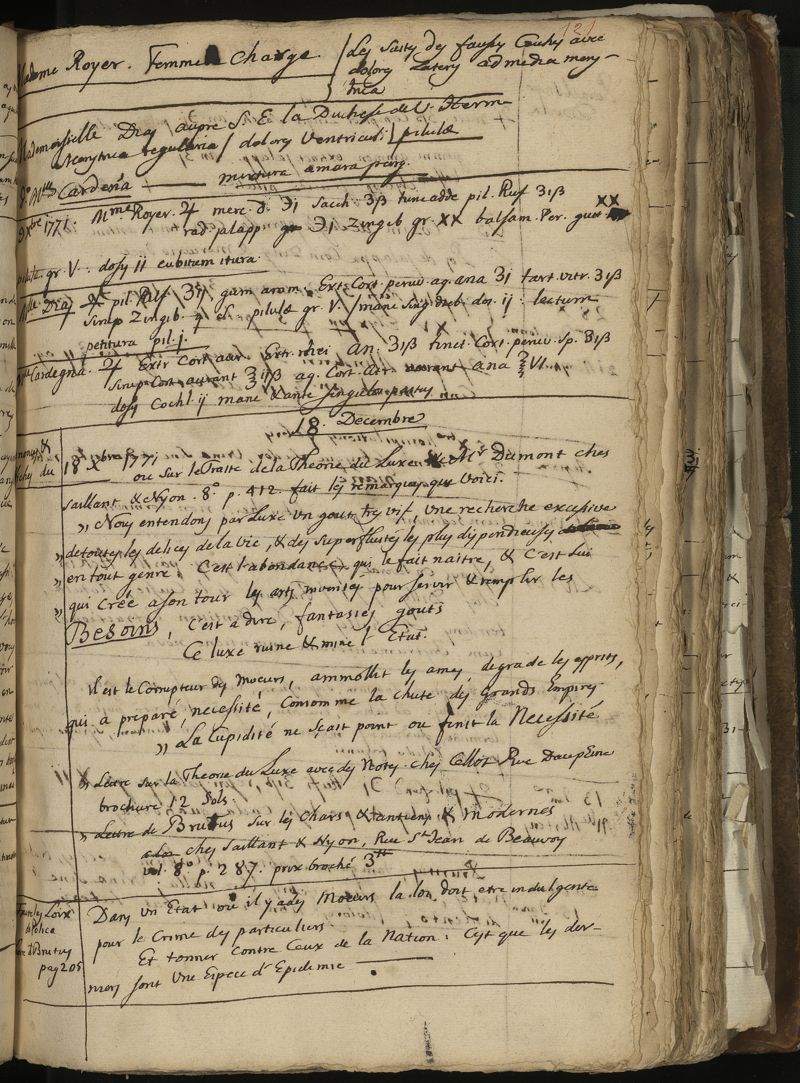 121
Madame Royer. Femme Charge. / Les suites des fausses Couches avec
dolores latery ad media men-
trua
Mademoiselle Dras / aupre S. E. la Duchesse de
Menstrua regularia / dolores Ventriculi / pilulæ
Cardegna — mixtura amara purg.
9xbre 1771. Mme Royer. ♃ merc. d. ℈i Sacch. ʒß tunc adde pil. Ruf ʒiß
rad. jalapp ℈i Zingib gr. XX balsam. Per. gutt XX
pilulæ gr. V. dosis ij cubitum itura.
Mlle Dras ♃ pil. Ruf / ʒij gum arom. Extr. Cort. peruv. aq. ana ʒi tart. vitr. ʒiß
Sirup Zingib. q. s. pilulæ gr. V. / mane Sing. dieb. dos. ij : lectum
petitura pil. j.
Cardegna. ♃ Extr Cort. aur. Extr. rhei, an. ʒiß tinct. Cort. peruv. sp. ʒiß
Sirup Cort. aurant ʒiiß aq. Cort. aur. ana ℥VI.
dosis Cochl. ij mane & ante
18. Decembre
18 Xbre 1771
ou sur le Traité de la Theorie du Luxe Mr. Dumont ches
Saillant & Nyon. 8.° p. 412. fait les remarques que Voici.
„ Nous entendons par Luxe un gout tres vif, une recherche excessive
„ de toutes les delices de la vie, & des superfluités les plus dispendieuses
„ en tout genre. C'est l'abondance qui le fait naitre, & C'est lui
„ qui Crée a son tour les arts inventés pour servir & remplir les
Besoins, c'est a dire, fantasies gouts
Ce luxe ruine & mine l'Etat.
Il est le Corrupteur des Moeurs, ammollit les ames, degrade les esprits,
qui a preparé, necessité, Consommé la chute des grands Empires
„ La Cupidité ne sçait point ou finit la Necessité
„ Lettre sur la Theorie du Luxe avec des Notes. chez Cellot Rue Dauphine
brochure 12 Sols.
„ Lettre de Brutus sur les Chars & antiens & modernes
chés Saillant & Nyon, Rue St Jean de Beauvoy
vol. 8.° p. 287. prix broché 3 tt
Loix
de Police
Brutus
pag 205
Dans un Etat ou il y a des Moeurs la loi doit etre indulgente
pour le Crime des particuliers.
Et tonner Contre Ceux de la Nation : C'est que les der-
niers sont Une Espece d'Epidemie